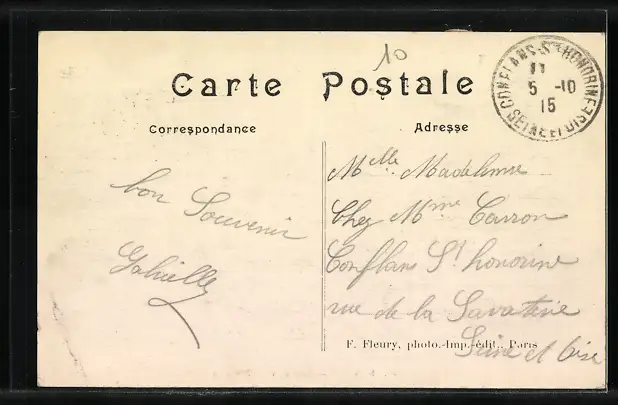 10
Carte Postale
CONFLANS-Ste HONORINE
11
5 -10
15
SEINE ET OISE
Correspondance
Adresse
bon Souvenir
Melle Madeleine
Chez Mme Carron
Conflans St honorine
rue de la Savaterie
Seine et Oise
F. Fleury, photo.-Imp.-édit., Paris